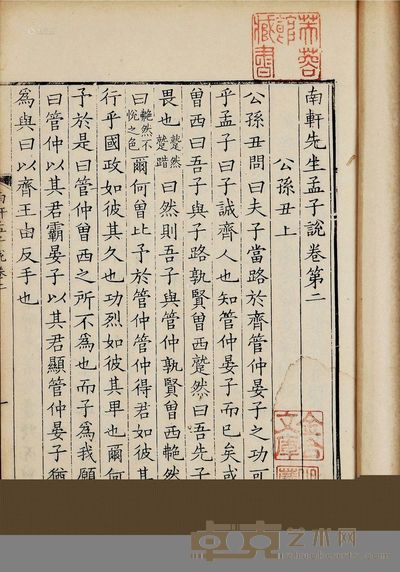 芙蓉館藏書
南軒先生孟子說卷第二
公孫丑上
公孫丑問曰夫子當路於齊管仲晏子之功可
乎孟子曰子誠齊人也知管仲晏子而已矣或
曾西曰吾子與子路孰賢曾西蹵然曰吾先子
畏也蹵然蹵踖曰然則吾子與管仲孰賢曾西艴然
曰艴然不悅之色爾何曾比予於管仲管仲得君如彼其
行乎國政如彼其久也功烈如彼其卑也爾何
予於是曰管仲曾西之所不爲也而子爲我願
曰管仲以其君霸晏子以其君顯管仲晏子猶
爲與曰以齊王由反手也
艺术网